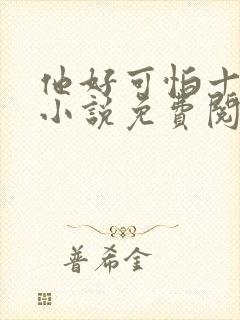 他好可怕十
小说免費閱
普希金